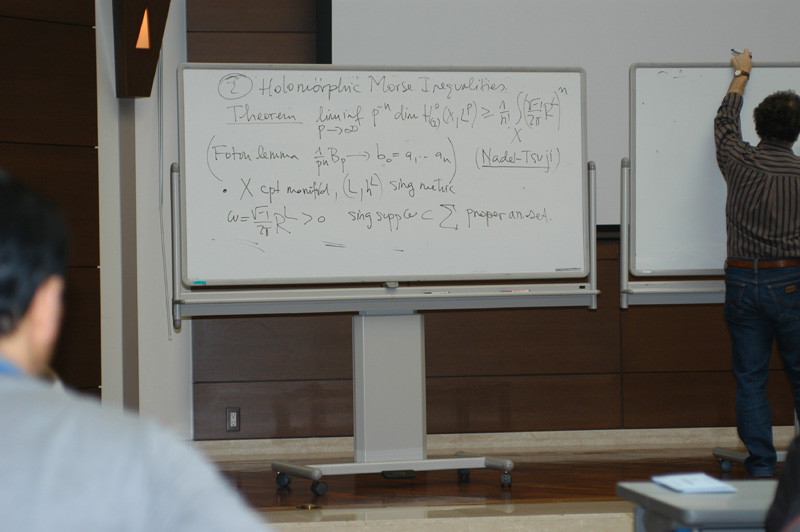 ② Holomorphic Morse Inequalities
Theorem lim inf p→∞ p⁻ⁿ dim H⁰₍₂₎(X, Lᵖ) ≥ 1/n! ∫_X (√-1/2π Rᴸ)ⁿ
(Fatou lemma 1/pⁿ Bₚ → b₀ = a₁...aₙ) (Nadel-Tsuji)
• X cpt manifold, (L, hᴸ) sing metric
ω = √-1/2π Rᴸ > 0 sing supp ω ⊂ Σ proper an. set.